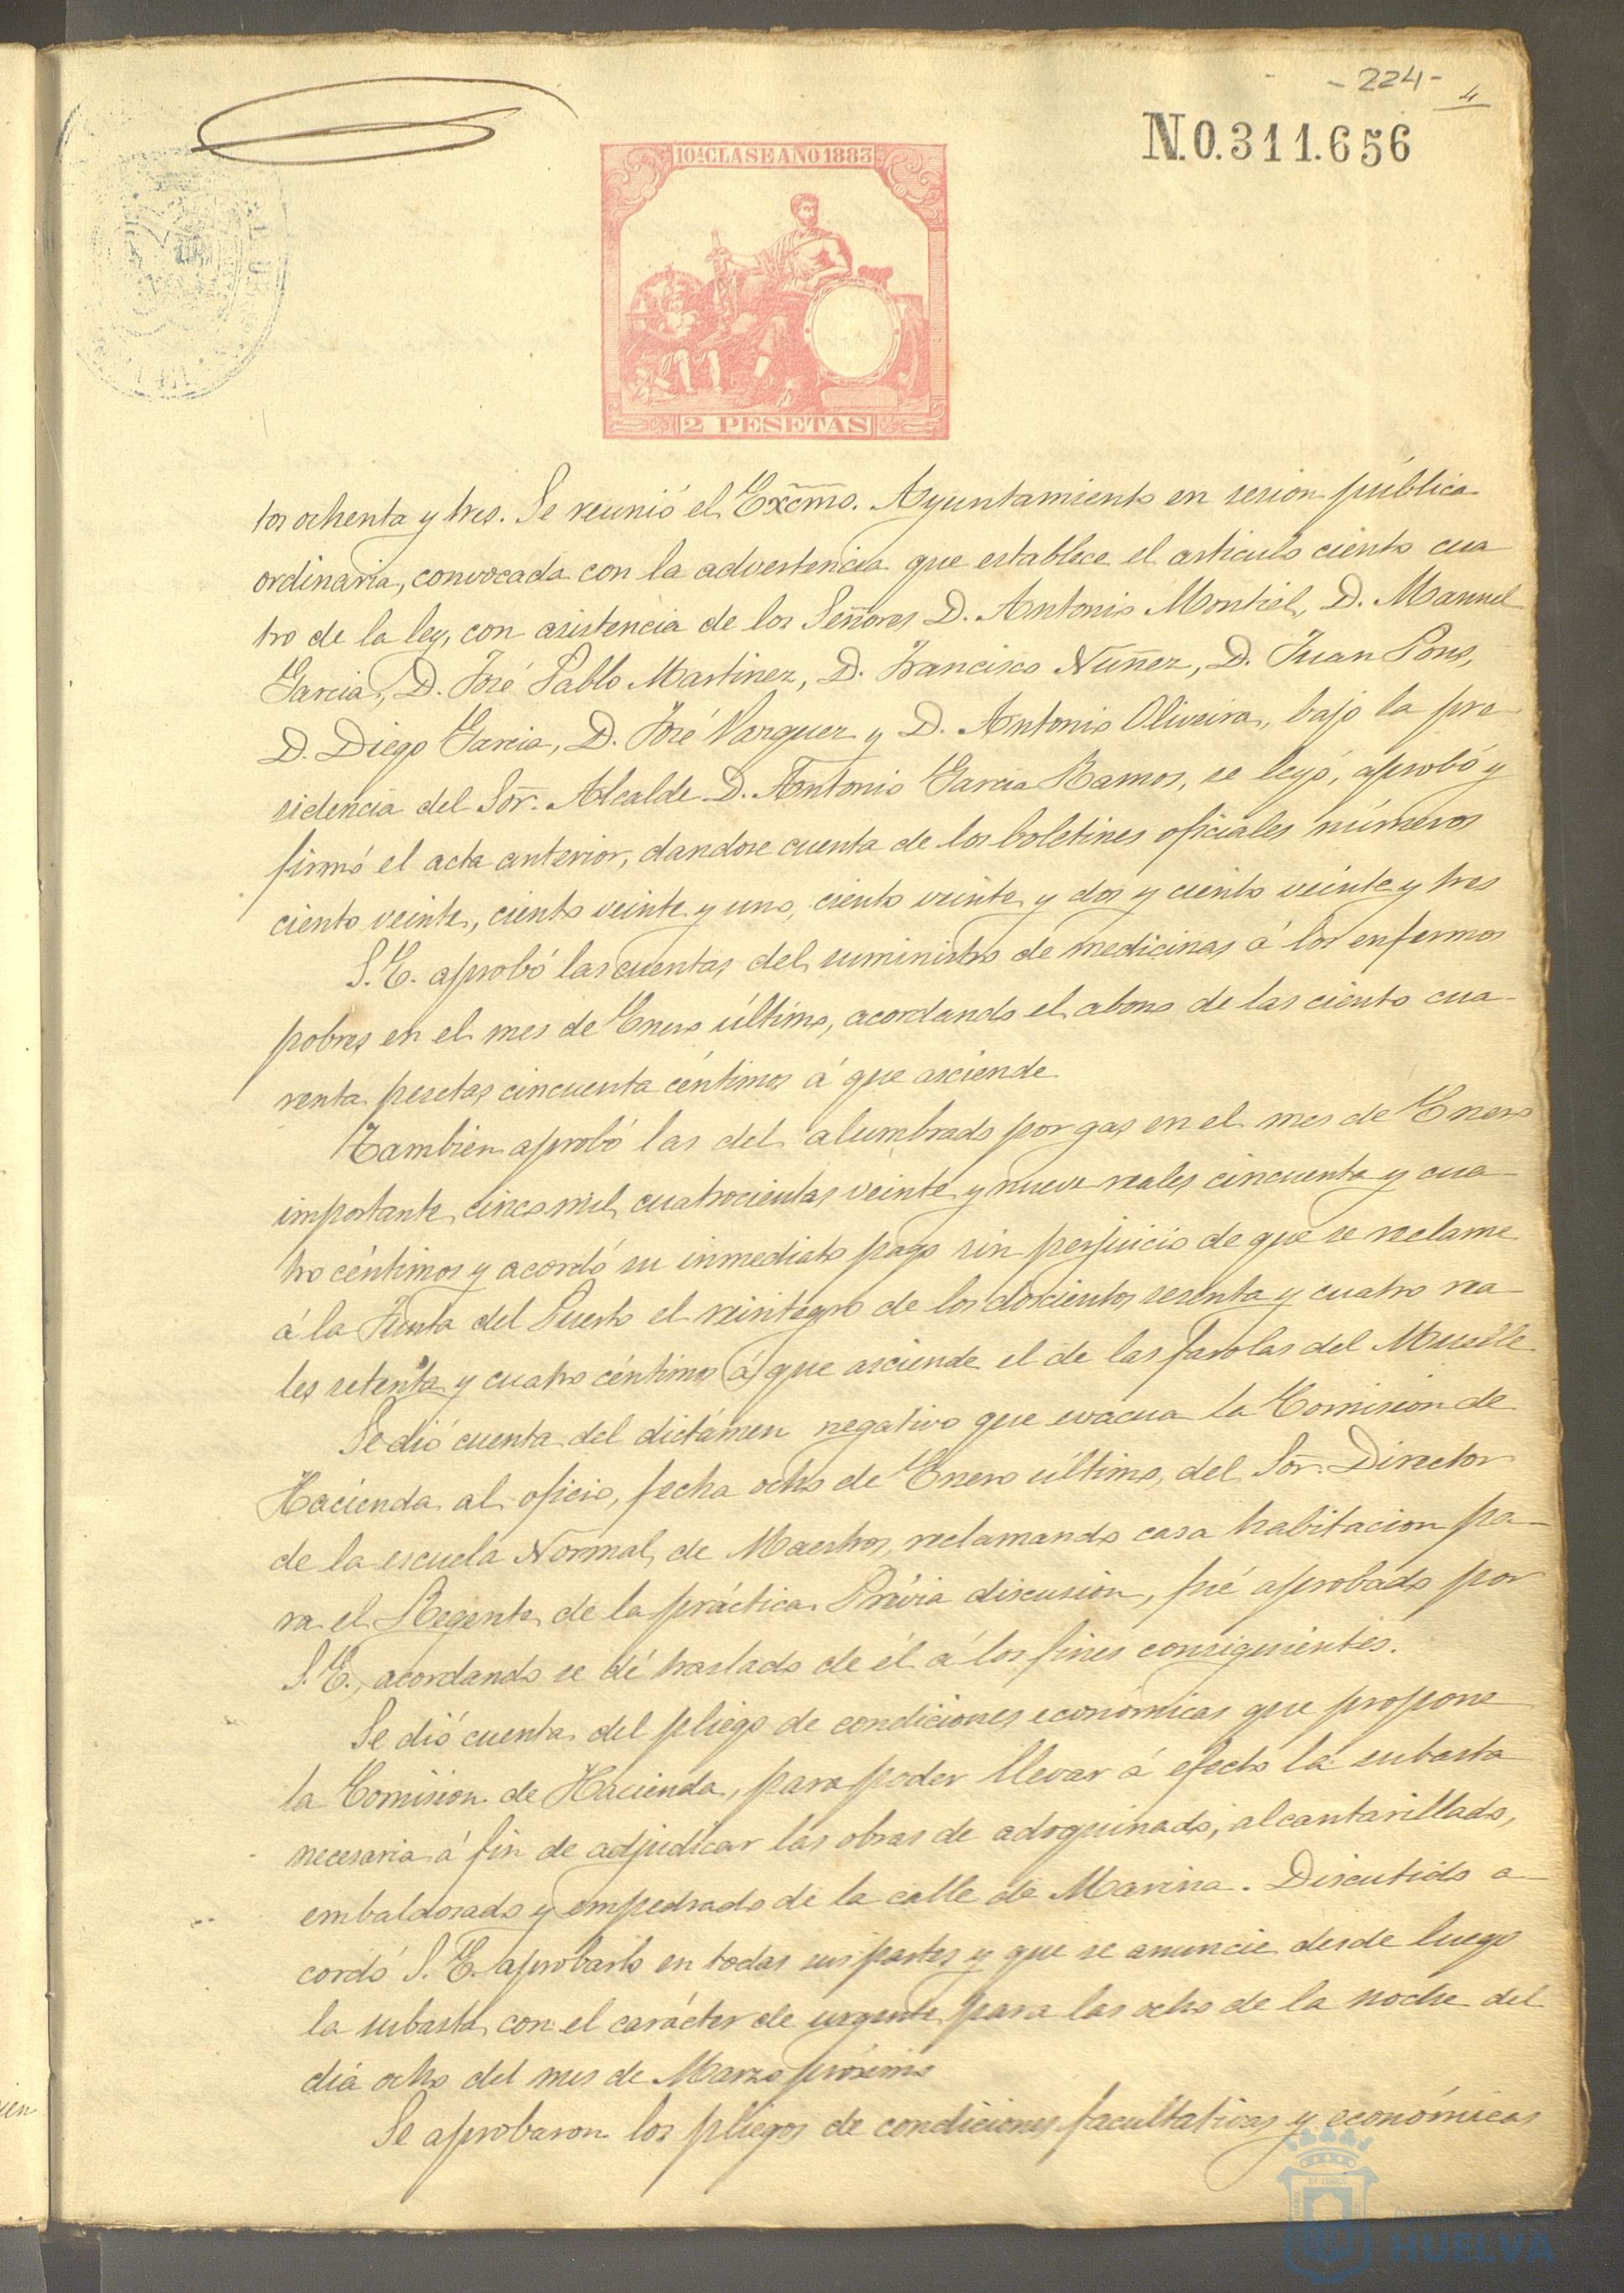 - 224 -
4
N.0.311.656
10ª CLASE AÑO 1883
2 PESETAS
tos ochenta y tres. Se reunió el Excmo. Ayuntamiento en sesion pública
ordinaria, convocada con la advertencia que establece el articulo ciento cua
tro de la ley, con asistencia de los Señores D. Antonio Montiel, D. Manuel
Garcia, D. José Pablo Martinez, D. Francisco Núñez, D. Juan Pons,
D. Diego Garcia, D. José Vazquez y D. Antonio Oliveira, bajo la pre
sidencia del Sor. Alcalde D. Antonio Garcia Ramos, se leyó, aprobó y
firmó el acta anterior, dandose cuenta de los boletines oficiales números
ciento veinte, ciento veinte y uno, ciento veinte y dos y ciento veinte y tres
S. E. aprobó las cuentas del suministro de medicinas á los enfermos
pobres en el mes de Enero último, acordando el abono de las ciento cua-
renta pesetas cincuenta céntimos á que asciende
Tambien aprobó las del alumbrado por gas en el mes de Enero
importante cinco mil cuatrocientas veinte y nueve reales cincuenta y cua-
tro céntimos y acordó su inmediato pago sin perjuicio de que se reclame
á la Junta del Puerto el reintegro de los doscientos sesenta y cuatro rea-
les setenta y cuatro céntimos á que asciende el de las farolas del Muelle
Se dió cuenta del dictámen negativo que evacua la Comision de
Hacienda al oficio, fecha ocho de Enero último, del Sor. Director
de la escuela Normal de Maestros, reclamando casa habitacion pa-
ra el Regente de la práctica. Prévia discusion, fué aprobado por
S. E., acordando se dé traslado de él á los fines consiguientes.
Se dió cuenta del pliego de condiciones económicas que propone
la Comision de Hacienda, para poder llevar á efecto la subasta
necesaria á fin de adjudicar las obras de adoquinado, alcantarillado,
embaldosado y empedrado de la calle de Marina. Discutido a-
cordó S. E. aprobarlo en todas sus partes y que se anuncie desde luego
la subasta con el carácter de urgente para las ocho de la noche del
dia ocho del mes de Marzo próximo
Se aprobaron los pliegos de condiciones facultativas y económicas
HUELVA